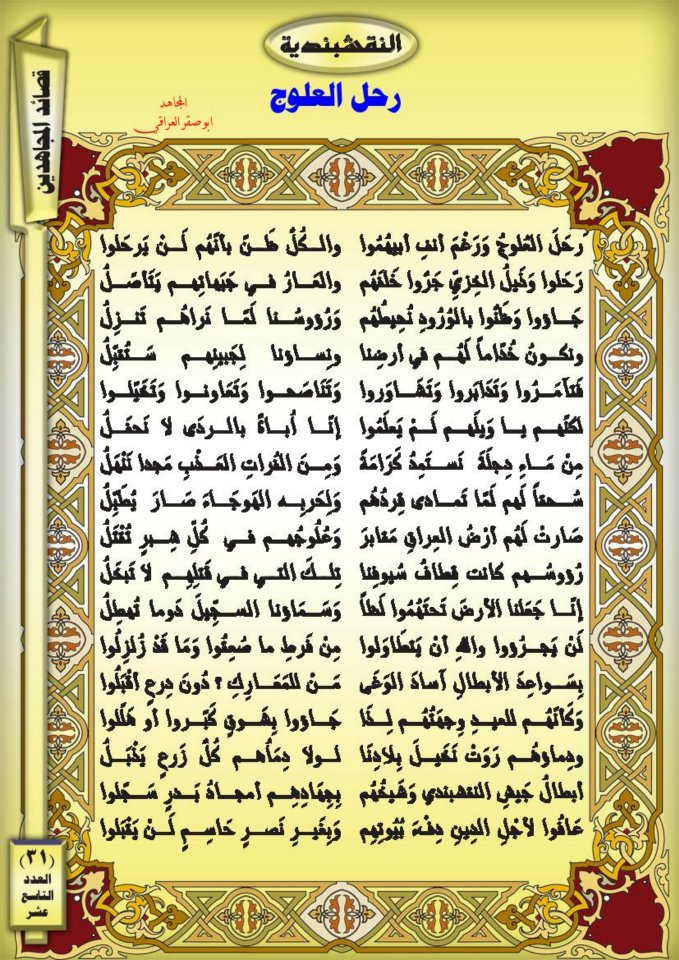 النقشبندية
رحل العلوج
المجاهد
ابوصقر العراقي
قصائد المجاهدين
رَحَلَ العُلوجُ وَرَغْمَ أنفِ أبيهُموا والكُلُّ ظَنَّ بأنَّهُم لَنْ يَرحَلوا
رَحَلوا وَذَيلُ الخِزيِّ جَرُّوا خَلفَهُم والعَارُ في جَبَهاتِهِم يَتَأصَّلُ
جَاؤوا وَظَنُّوا بالوُرُودِ تُحِيطُهُم وَرُؤوسُنا لَمَّا نَراهُم تَنزِلُ
ونكونُ خُدَّاماً لَهُم في أرضِنا ونِساؤنا لِجَبينِهِم سَتُقَبِّلُ
فَتآمَرُوا وَتَدَابَروا وَتَشَاوَروا وَتَنَاصَحوا وَتَعَاونوا وَتَخَيَّلوا
لكنَّهم يا وَيلَهم لَمْ يَعلَمُوا إنَّا أُباةٌ بالرَدَى لا نَحفَلُ
مِنْ مَاءِ دِجلَةَ نَستَمِدُّ كَرَامَةً وَمِنَ الفُراتِ العَذْبِ مَجدا نَنْهَلُ
سُحقاً لَهم لَمَّا تَمادى قِردُهُم وَلِحَربِه الهَوجَاءَ صَارَ يُطَبِّلُ
صَارتْ لَهُم أرْضُ العِراقِ مَقابِرَ وَعُلُوجُهم في كُلِّ شِبرٍ تُقْتَلُ
رُؤوسُهم كانت قِطافُ سُيوفِنا تِلكَ التي في قَتلِهِم لا تَبخَلُ
إنَّا جَعَلنا الأرضَ تَحتَهُمُوا لَظاً وَسَمَاؤنا السجِّيلَ دَوما تُهطِلُ
لَنْ يَجرُؤوا واللهِ أنْ يَتَطَاوَلوا مِن فَرطِ ما صُعِقُوا وَمَا قَدْ زُلزِلُوا
بِسَواعِدَ الأبطالِ آسادَ الوَغَى مَنْ للمَعَارِكِ ؟ دُونَ دِرعٍ أقبَلُوا
وَكَأنَّهُم للعيدِ وِجهَتُهُم لِذَا جَاؤوا بِشَوقٍ كَبَّروا أو هَلَّلوا
ودِماؤهُم رَوَتْ نَخيلَ بِلادِنَا لولا دِمَاُهم كُلُّ زَرعٍ يَذْبَلُ
أبطالُ جَيشِ النَقشبَندي وَشَيخُهُم بِجِهَادِهِم أمجادُ بَدرٍ سَجَّلوا
عَافُوا لأجْلِ الدِينِ دِفءَ بُيُوتِهِم وَبِغَيرِ نَصرٍ حَاسِمٍ لَنْ يَقبَلوا
(٣١)
العدد
التاسع
عشر